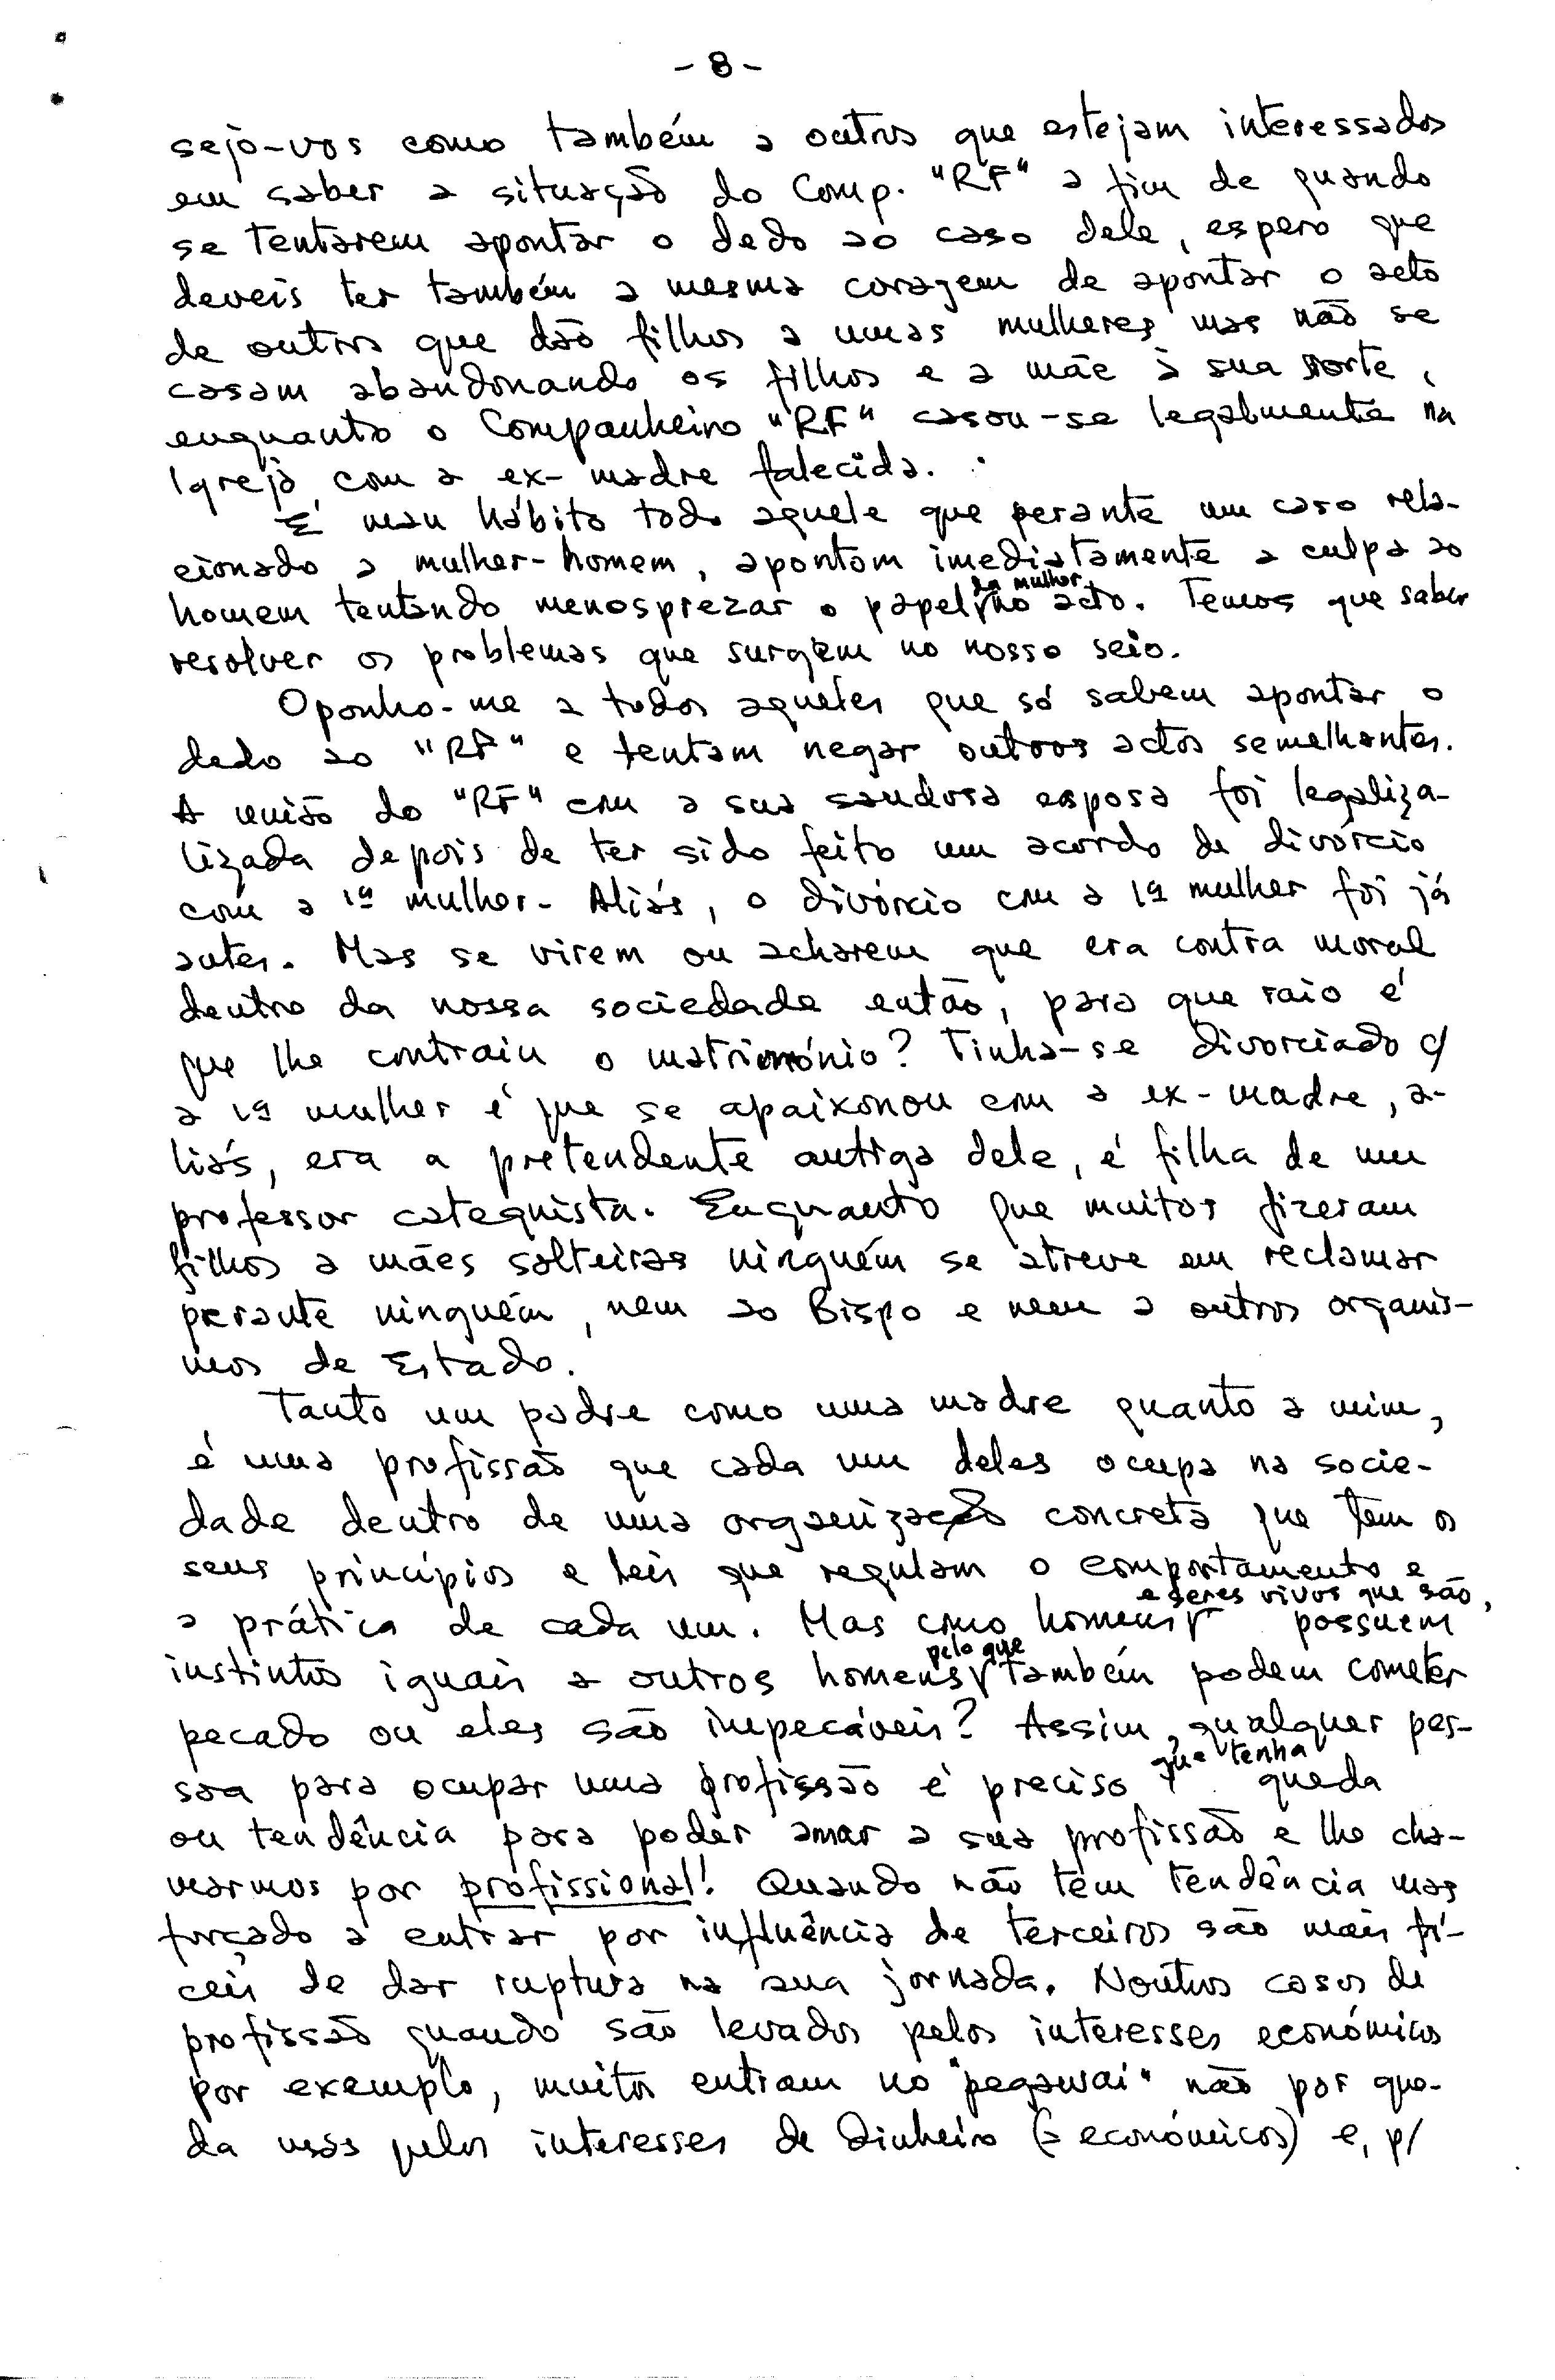 - 8 -
seja-vos como também a outros que estejam interessados
em saber a situação do Comp. "RF" a fim de quando
se tentarem apontar o dedo ao caso dele, espero que
deveis ter também a mesma coragem de apontar o acto
de outros que dão filhos a umas mulheres mas não se
casam abandonando os filhos e a mãe à sua sorte,
enquanto o Companheiro "RF" casou-se legalmente na
Igreja, com a ex-madre falecida.
É mau hábito todo aquele que perante um caso rela-
cionado a mulher-homem, apontam imediatamente a culpa ao
homem tentando menosprezar o papel da mulher no acto. Temos que saber
resolver os problemas que surgem no nosso seio.
Oponho-me a todos aqueles que só sabem apontar o
dedo ao "RF" e tentam negar outros actos semelhantes.
A união do "RF" com a sua saudosa esposa foi legaliza-
lizada depois de ter sido feito um acordo de divórcio
com a 1ª mulher. Aliás, o divórcio com a 1ª mulher foi já
antes. Mas se virem ou acharem que era contra moral
dentro da nossa sociedade então, para que raio é
que lhe contraiu o matrimónio? Tinha-se divorciado c/
a 1ª mulher é que se apaixonou com a ex-madre, a-
liás, era a pretendente antiga dele, é filha de um
professor catequista. Enquanto que muitos fizeram
filhos a mães solteiras ninguém se atreve em reclamar
perante ninguém, nem ao Bispo e nem a outros organis-
mos de Estado.
Tanto um padre como uma madre quanto a mim,
é uma profissão que cada um deles ocupa na socie-
dade dentro de uma organização concreta que tem os
seus princípios e leis que regulam o comportamento e
a prática de cada um. Mas como homens e seres vivos que são, possuem
instintos iguais a outros homens pelo que também podem cometer
pecado ou eles são impecáveis? Assim, qualquer pes-
soa para ocupar uma profissão é preciso que tenha queda
ou tendência para poder amar a sua profissão e lhe cha-
marmos por profissional! Quando não tem tendência mas
forçado a entrar por influência de terceiros são mais fá-
ceis de dar ruptura na sua jornada. Noutros casos de
profissão quando são levados pelos interesses económicos
por exemplo, muitos entram no "pegawai" não por que-
da mas pelos interesses de dinheiro (= económicos) e, p/